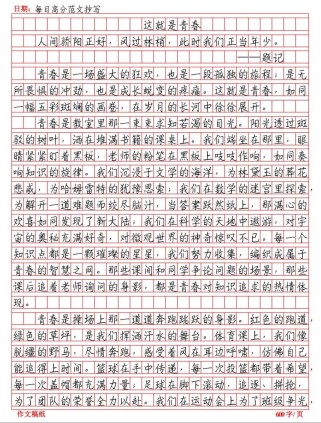 日期：每日高分范文抄写
这就是青春
人间骄阳正好，风过林梢，此时我们正当年少。
——题记
青春是一场盛大的狂欢，也是一段孤独的旅程；是无
所畏惧的冲动，也是成长蜕变的疼痛。这就是青春，如同
一幅五彩斑斓的画卷，在岁月的长河中徐徐展开。
青春是教室里那一束束求知若渴的目光。阳光透过斑
驳的树叶，洒在堆满书籍的课桌上。我们端坐在那里，眼
睛紧紧盯着黑板，老师的粉笔在黑板上吱吱作响，如同奏
响知识的旋律。我们沉浸于文学的海洋，为林黛玉的葬花
悲戚，为哈姆雷特的犹豫思索；我们在数学的迷宫里探索，
为解开一道难题而绞尽脑汁，当答案跃然纸上，那满心的
欢喜如同发现了新大陆；我们在科学的天地中遨游，对宇
宙的奥秘充满好奇，对微观世界的神奇惊叹不已。每一个
知识点都是一颗璀璨的星星，我们努力收集，编织成属于
青春的智慧之网。那些课间和同学争论问题的场景，那些
课后追着老师询问的身影，都是青春对知识追求的热情体
现。
青春是操场上那一道道奔跑跳跃的身影。红色的跑道，
绿色的草坪，是我们挥洒汗水的舞台。体育课上，我们像
脱缰的野马，尽情奔跑，感受着风在耳边呼啸，仿佛自己
能追得上时间。篮球在手中传递，每一次投篮都带着希望，
每一次盖帽都充满力量；足球在脚下滚动，追逐、拼抢，
为了团队的荣誉全力以赴。我们在运动会上为了班级争光，
作文稿纸
600字/页